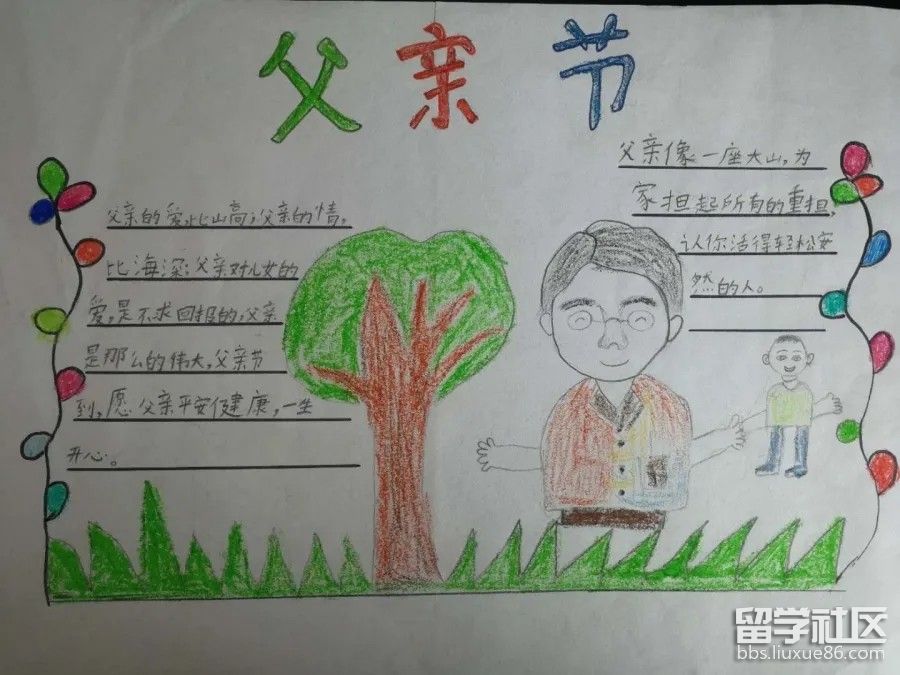 父亲节
父亲的爱,比山高;父亲的情,
比海深;父亲对儿女的
爱,是不求回报的,父亲
是那么的伟大,父亲节
到,愿父亲平安健康,一生
开心。
父亲像一座大山,为
家担起所有的重担,
认你活得轻松安
然的人。
留学社区
bbs.liuxue86.com